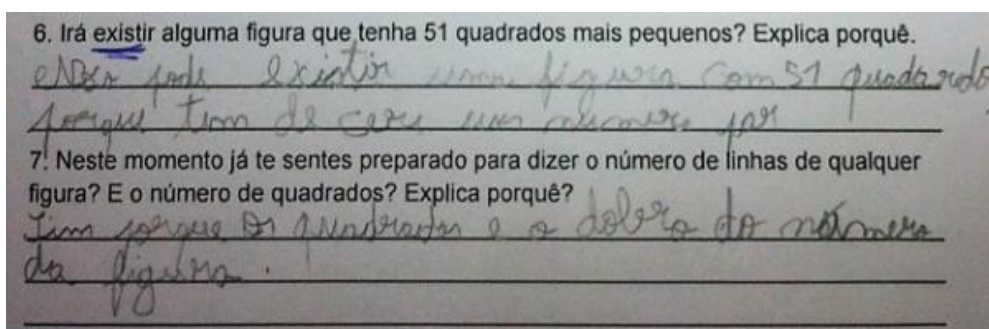 6. Irá existir alguma figura que tenha 51 quadrados mais pequenos? Explica porquê.
não pode existir uma figura com 51 quadarado
porque tem de ceru um numero par
7. Neste momento já te sentes preparado para dizer o número de linhas de qualquer
figura? E o número de quadrados? Explica porquê?
Sim porque os quadrados e o dobro do número
da figura.